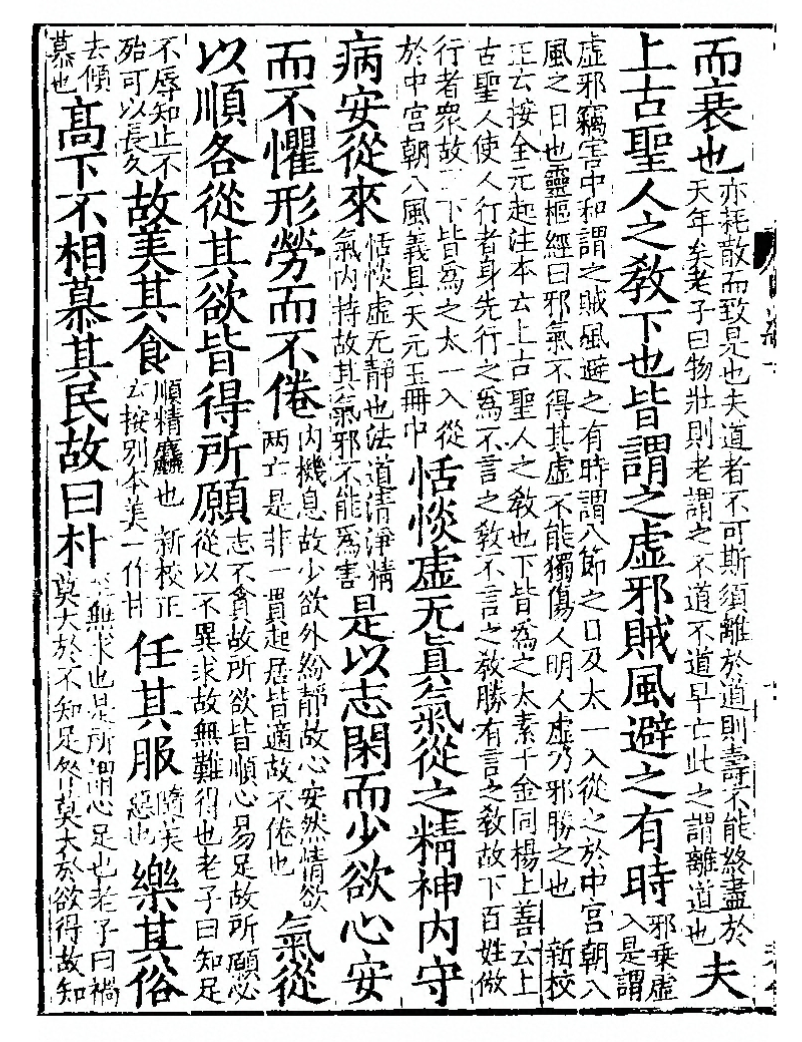 而衰也亦耗散而致是也夫道者不可斯須離於道則壽不能終盡於天年矣老子曰物壯則老謂之不道不道早亡此之謂離道也夫
上古聖人之教下也皆謂之虛邪賊風避之有時邪乘虛入是謂
虛邪竊害中和謂之賊風避之有時謂八節之日及太一入從之於中宮朝八
風之日也靈樞經曰邪氣不得其虛不能獨傷人明人虛乃邪勝之也 新校
正云按全元起注本云上古聖人之教也下皆為之太素千金同楊上善云上
古聖人使人行者身先行之為不言之教不言之教勝有言之教故下百姓倣
行者眾故下皆為之太一入從於中宮朝八風義具天元玉冊中恬惔虛无真氣從之精神內守
病安從來恬惔虛无靜也法道清淨精氣內持故其氣邪不能為害是以志閑而少欲心安
而不懼形勞而不倦內機息故少欲外紛靜故心安然情欲兩亡是非一貫起居皆適故不倦也氣從
以順各從其欲皆得所願志不貪故所欲皆順心易足故所願必從以不異求故無難得也老子曰知足
不辱知止不殆可以長久故美其食順精麤也 新校正云按別本美一作甘任其服隨美惡也樂其俗
去傾慕也高下不相慕其民故曰朴至無求也是所謂心足也老子曰禍莫大於不知足咎莫大於欲得故知